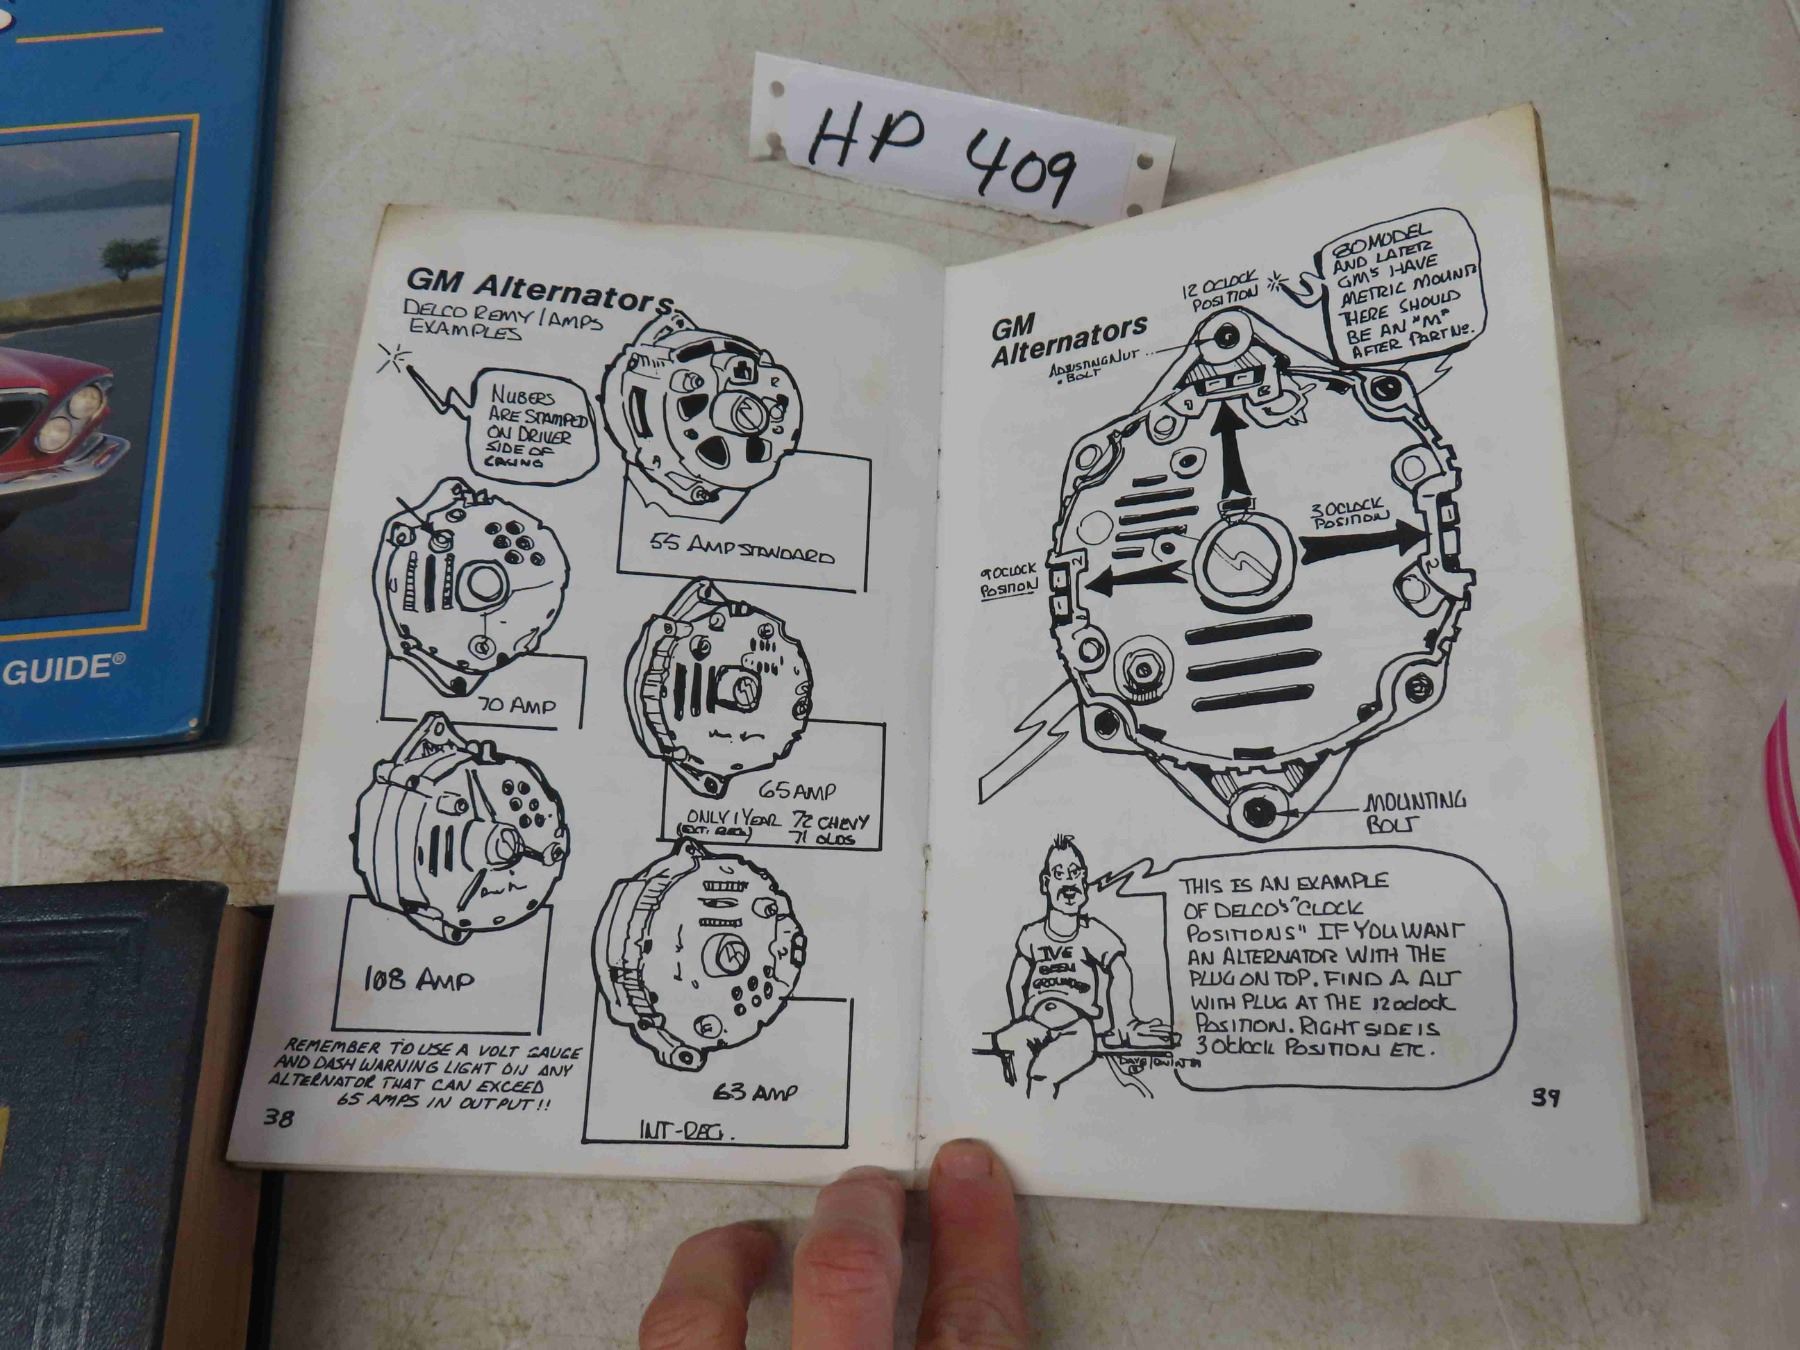 HP 409
GUIDE®
GM Alternators
DELCO REMY / AMPS
EXAMPLES
NUBERS
ARE STAMPED
ON DRIVER
SIDE OF
CASING
55 AMP STANDARD
70 AMP
65 AMP
ONLY 1 YEAR 72 CHEVY
(EXT. REG.) 71 OLDS
108 AMP
63 AMP
INT-REG.
REMEMBER TO USE A VOLT GAUGE
AND DASH WARNING LIGHT ON ANY
ALTERNATOR THAT CAN EXCEED
65 AMPS IN OUTPUT!!
38
GM
Alternators
12 OCLOCK
POSITION
80 MODEL
AND LATER
GM'S HAVE
METRIC MOUNTS
THERE SHOULD
BE AN "M"
AFTER PART No.
ADJUSTING NUT
& BOLT
3 OCLOCK
POSITION
9 OCLOCK
POSITION
MOUNTING
BOLT
THIS IS AN EXAMPLE
OF DELCO'S "CLOCK
POSITIONS" IF YOU WANT
AN ALTERNATOR WITH THE
PLUG ON TOP. FIND A ALT
WITH PLUG AT THE 12 oclock
POSITION. RIGHT SIDE IS
3 Oclock POSITION ETC.
I'VE
BEEN
GROUNDED
39